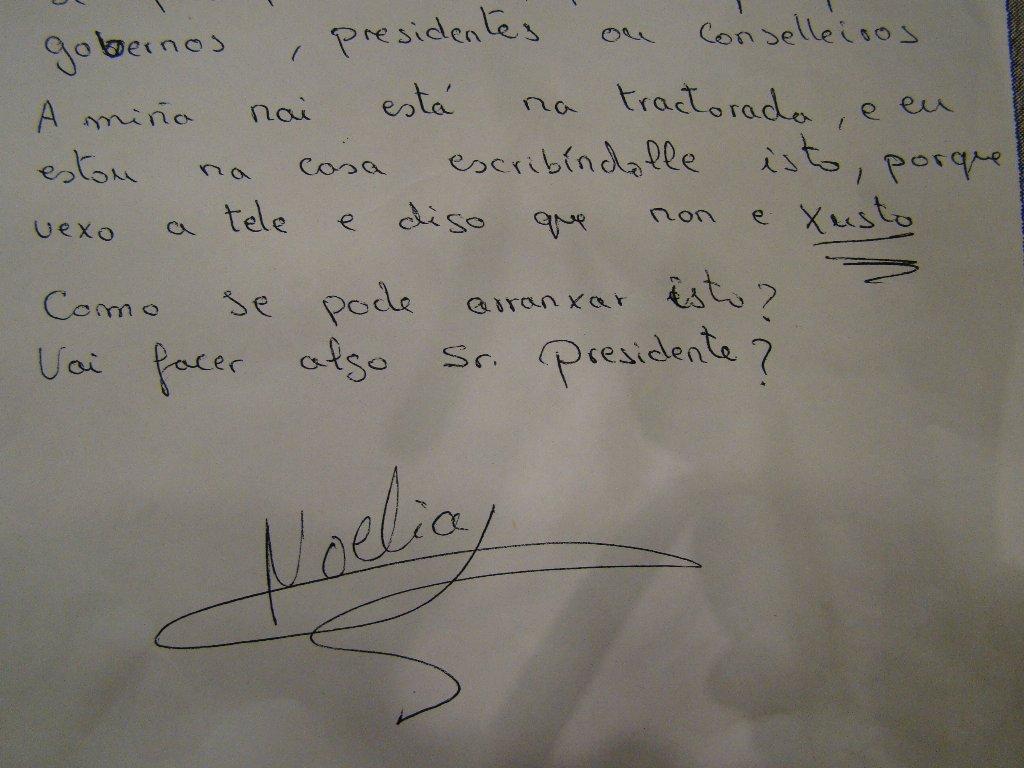 gobernos, presidentes ou conselleiros
A miña nai está na tractorada, e eu
estou na casa escribíndolle isto, porque
vexo a tele e digo que non e xusto
Como se pode arranxar isto?
Vai facer algo Sr. Presidente?
Noelia